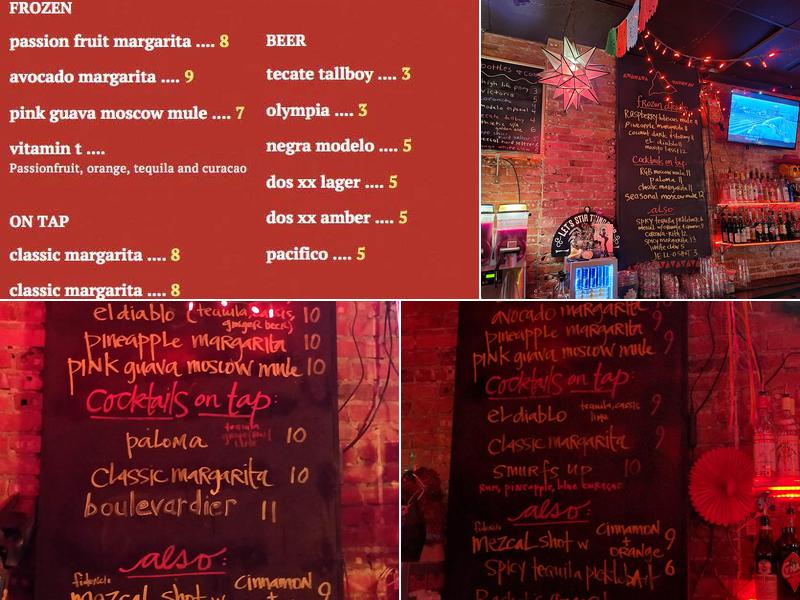 FROZEN
passion fruit margarita .... 8
avocado margarita .... 9
pink guava moscow mule .... 7
vitamin t ....
Passionfruit, orange, tequila and curacao
ON TAP
classic margarita .... 8
classic margarita .... 8
BEER
tecate tallboy .... 3
olympia .... 3
negra modelo .... 5
dos xx lager .... 5
dos xx amber .... 5
pacifico .... 5
high life pony 3
victoria
tecate tallboy
LET'S STIR
frozen drinks
Raspberry hibiscus mule
Pineapple margarita
el diablo 11
Cocktails on tap:
paloma 11
classic margarita 11
seasonal moscow mule 12
also:
spicy tequila pickleback
spicy margarita 13
white claw 5
JELL-O SHOT 3
el diablo (tequila, cassis, ginger beer) 10
pineapple margarita 10
pink guava moscow mule 10
Cocktails on tap:
paloma 10
classic margarita 10
boulevardier 11
also:
fidencio
mezcal shot w cinnamon 9
avocado margarita 9
pineapple margarita 9
pink guava moscow mule 9
Cocktails on tap:
el diablo tequila, cassis lime 9
classic margarita 9
smurfs up 10
Rum, pineapple, blue curaçao
also:
fidencio
mezcal shot w cinnamon + orange 9
spicy tequila pickleback 6